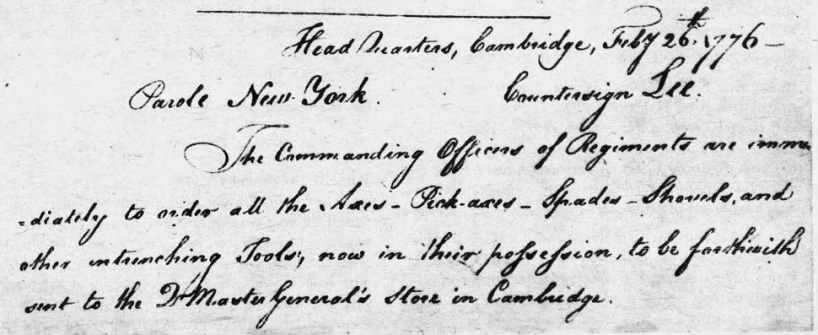 Head Quarters, Cambridge, Feby 26th. 1776 —
Parole New York. Countersign Lee.
The Commanding Officers of Regiments are imme
-diately to order all the Axes - Pick-axes - Spades - Shovels, and
other intrenching Tools, now in their possession, to be forthwith
sent to the Qr Master General's Store in Cambridge.